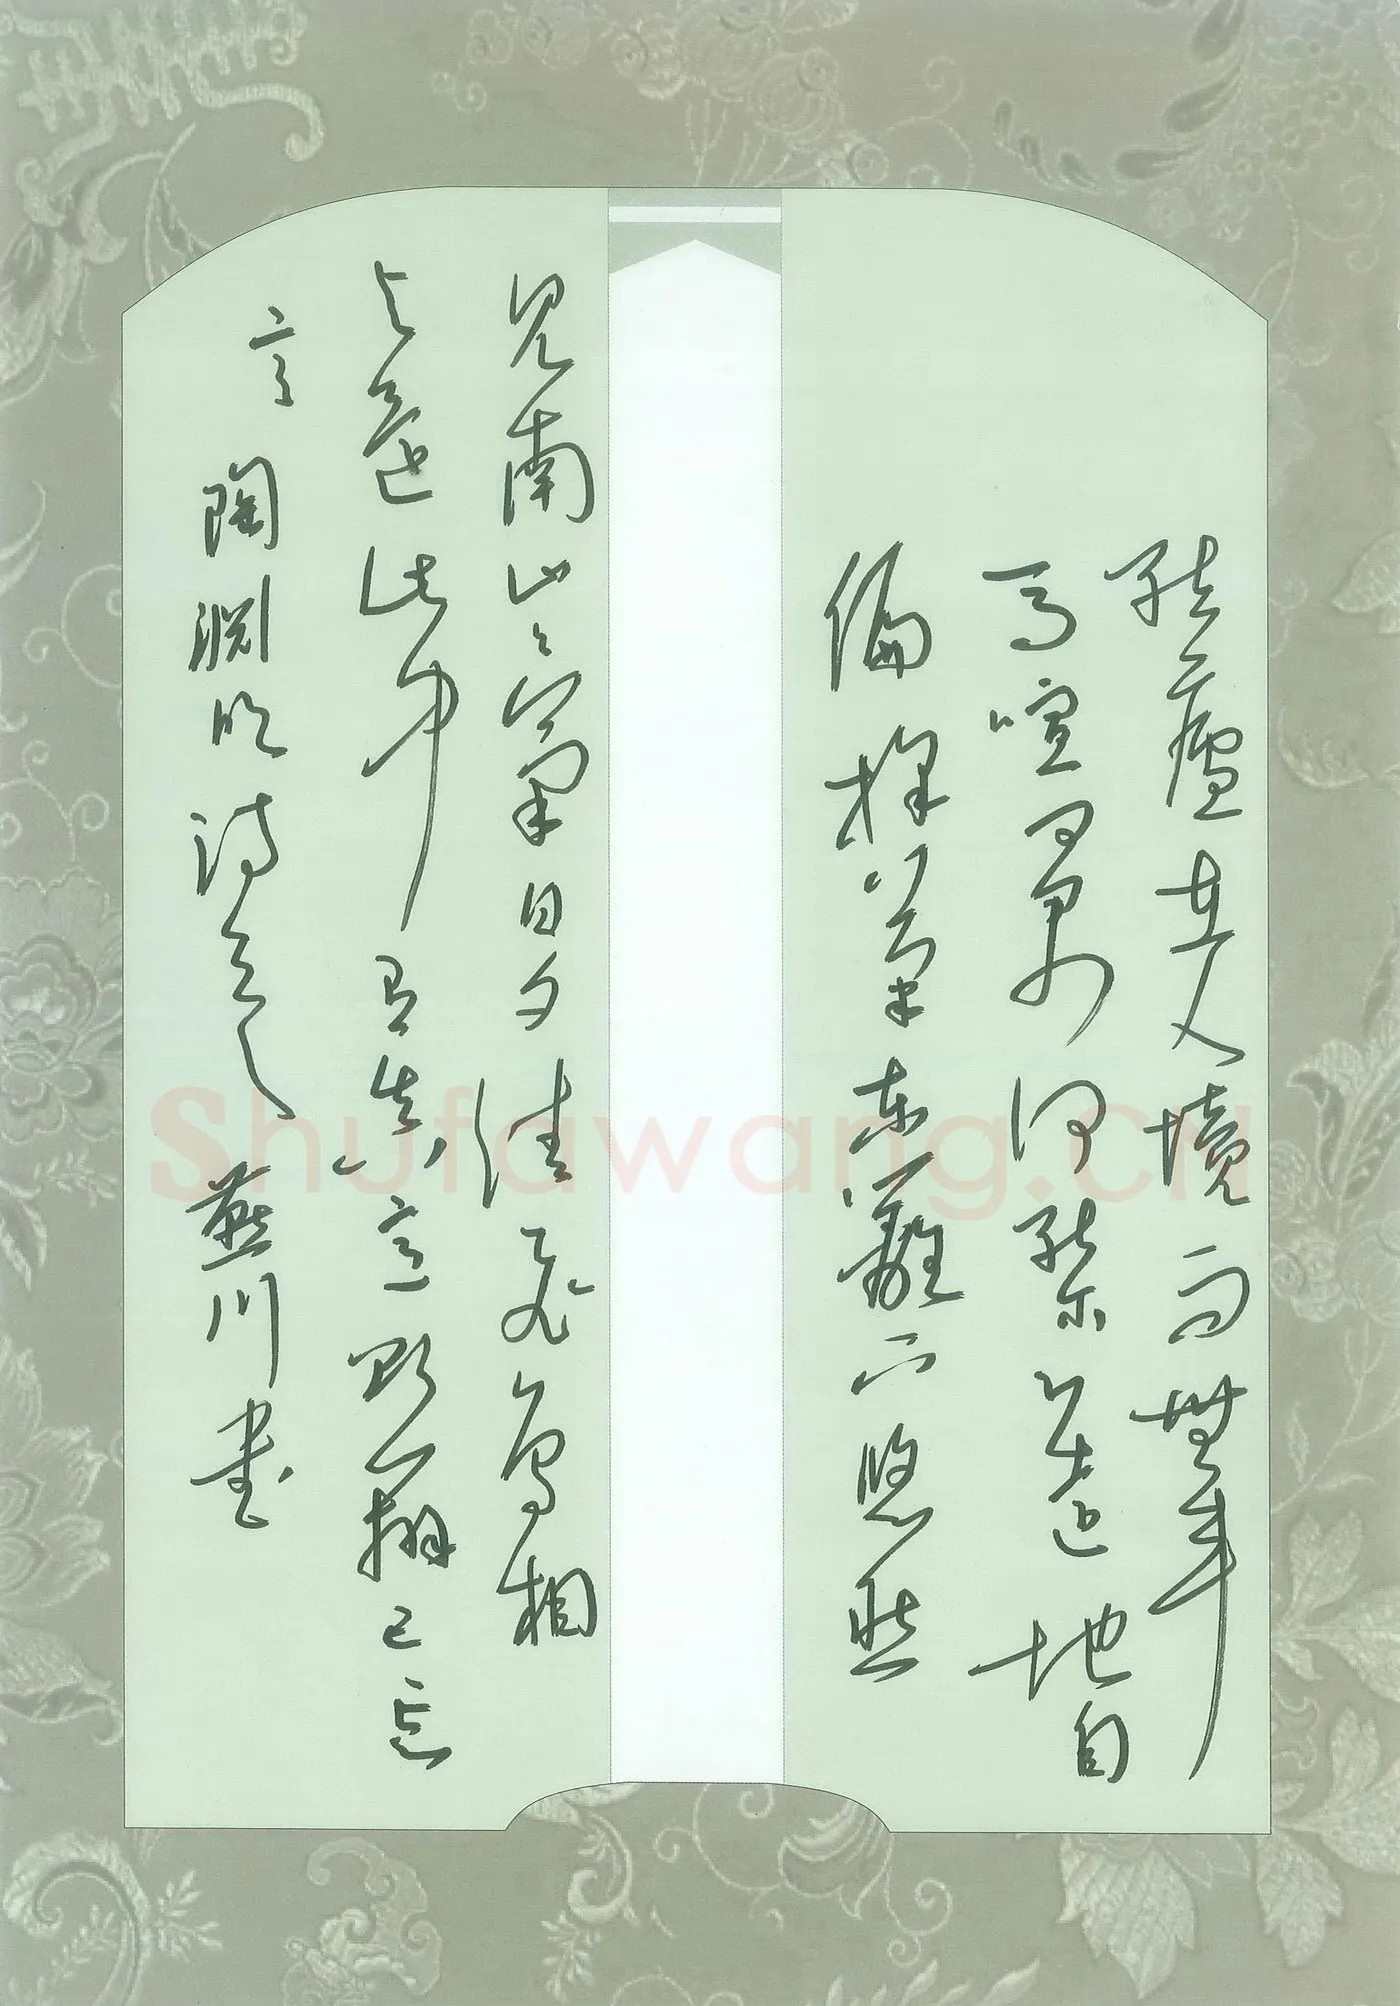 结庐在人境而无车
马喧问君何能尔心远地自
偏采菊东篱下悠然
见南山山气日夕佳飞鸟相
与还此中有真意欲辨已忘
言 陶渊明诗 燕川书
Shufawang.cn